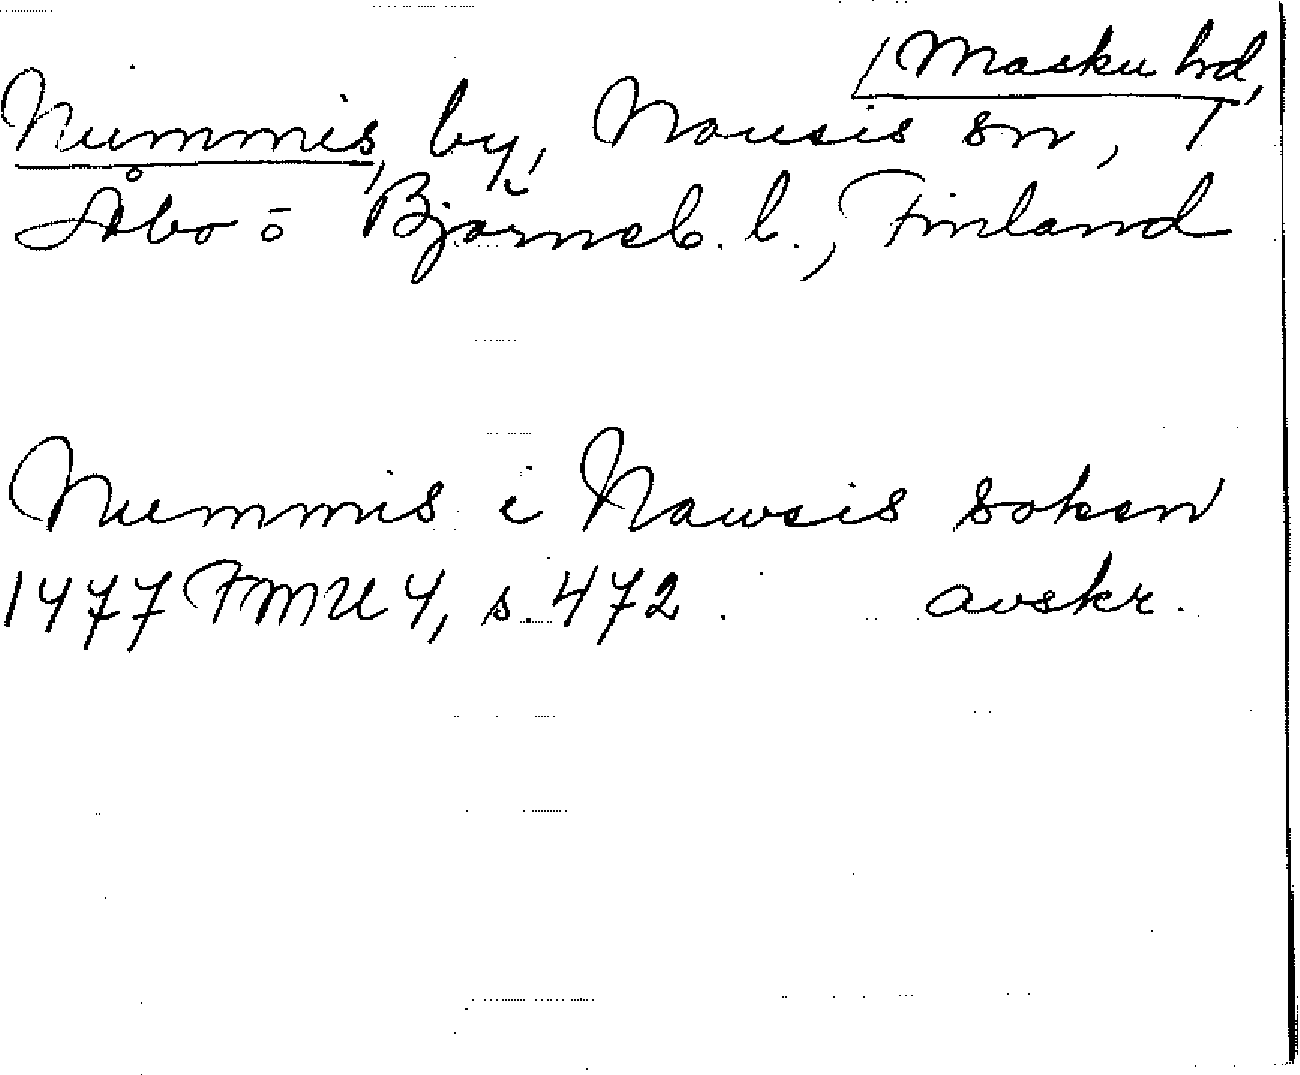 Masku hd,
Nummis, by, Nousis sn,
Åbo o Björneb. l., Finland
Nummis i Nawsis soken
1477 FMU 4, s. 472. avskr.